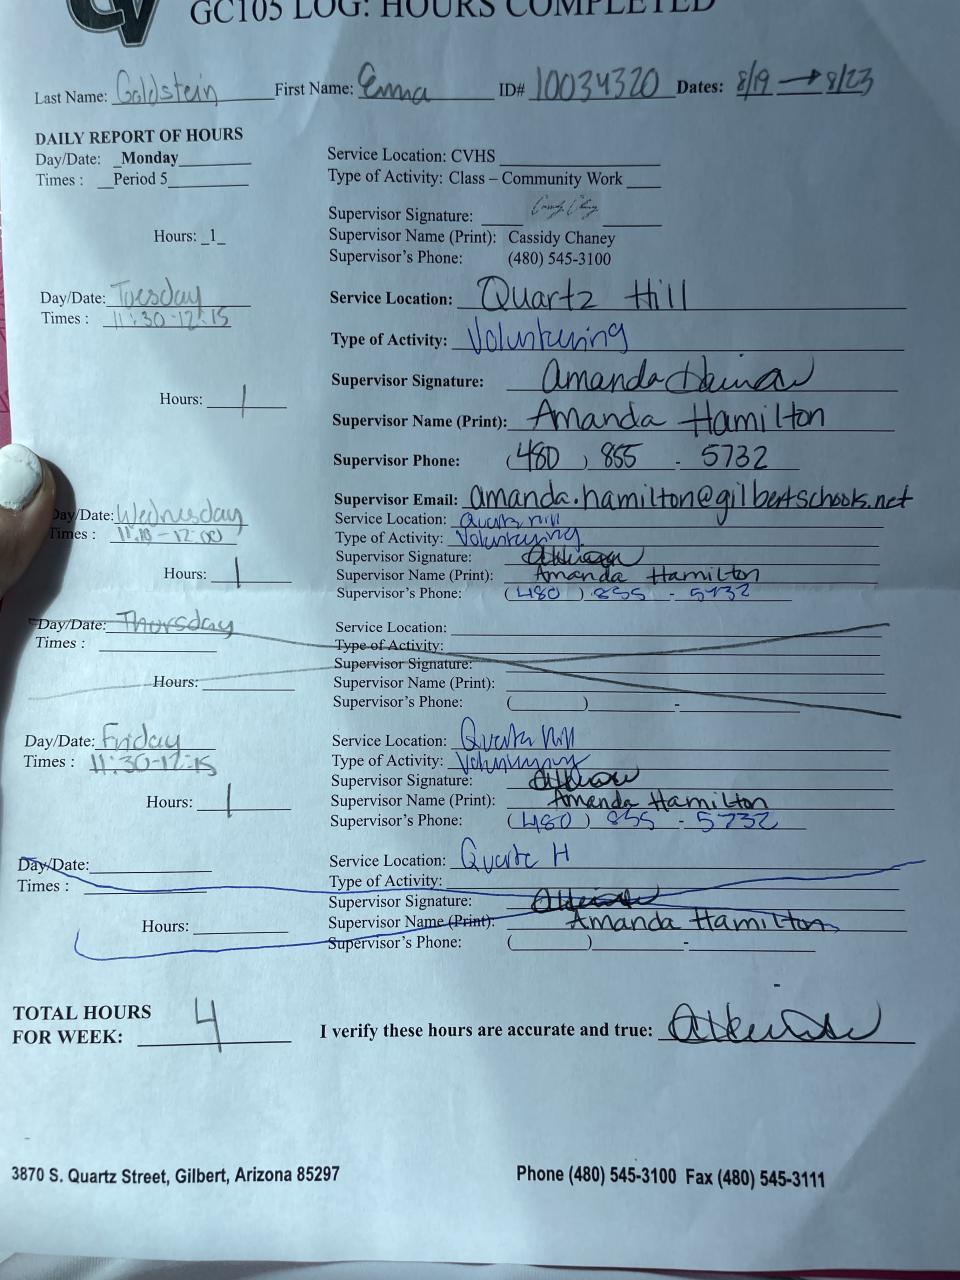 CV
GC105 LOG: HOURS COMPLETED
Last Name: Goldstein First Name: Emma ID# 10034320 Dates: 8/19 → 8/23
DAILY REPORT OF HOURS
Day/Date: Monday
Times : Period 5
Hours: 1
Service Location: CVHS
Type of Activity: Class – Community Work
Supervisor Signature:
Supervisor Name (Print): Cassidy Chaney
Supervisor's Phone: (480) 545-3100
Day/Date: Tuesday
Times : 11:30-12:15
Hours: 1
Service Location: Quartz Hill
Type of Activity: Voluntuering
Supervisor Signature: Amanda
Supervisor Name (Print): Amanda Hamilton
Supervisor Phone: (480) 855 - 5732
Supervisor Email: amanda.hamilton@gilbertschools.net
Day/Date: Wednusday
Times : - 12:00
Hours: 1
Service Location: Quartz Hill
Type of Activity: Voluntuering
Supervisor Signature:
Supervisor Name (Print): Amanda Hamilton
Supervisor's Phone: (480) 855 - 5732
Day/Date: Thursday
Times :
Hours:
Service Location:
Type of Activity:
Supervisor Signature:
Supervisor Name (Print):
Supervisor's Phone: ( ) -
Day/Date: Friday
Times : 11:30-12:15
Hours: 1
Service Location: Quartz Hill
Type of Activity: Voluntuering
Supervisor Signature:
Supervisor Name (Print): Amanda Hamilton
Supervisor's Phone: (480) 855 - 5732
Day/Date:
Times :
Hours:
Service Location: Quartz H
Type of Activity:
Supervisor Signature:
Supervisor Name (Print): Amanda Hamilton
Supervisor's Phone: ( ) -
TOTAL HOURS
FOR WEEK: 4
I verify these hours are accurate and true:
3870 S. Quartz Street, Gilbert, Arizona 85297 Phone (480) 545-3100 Fax (480) 545-3111